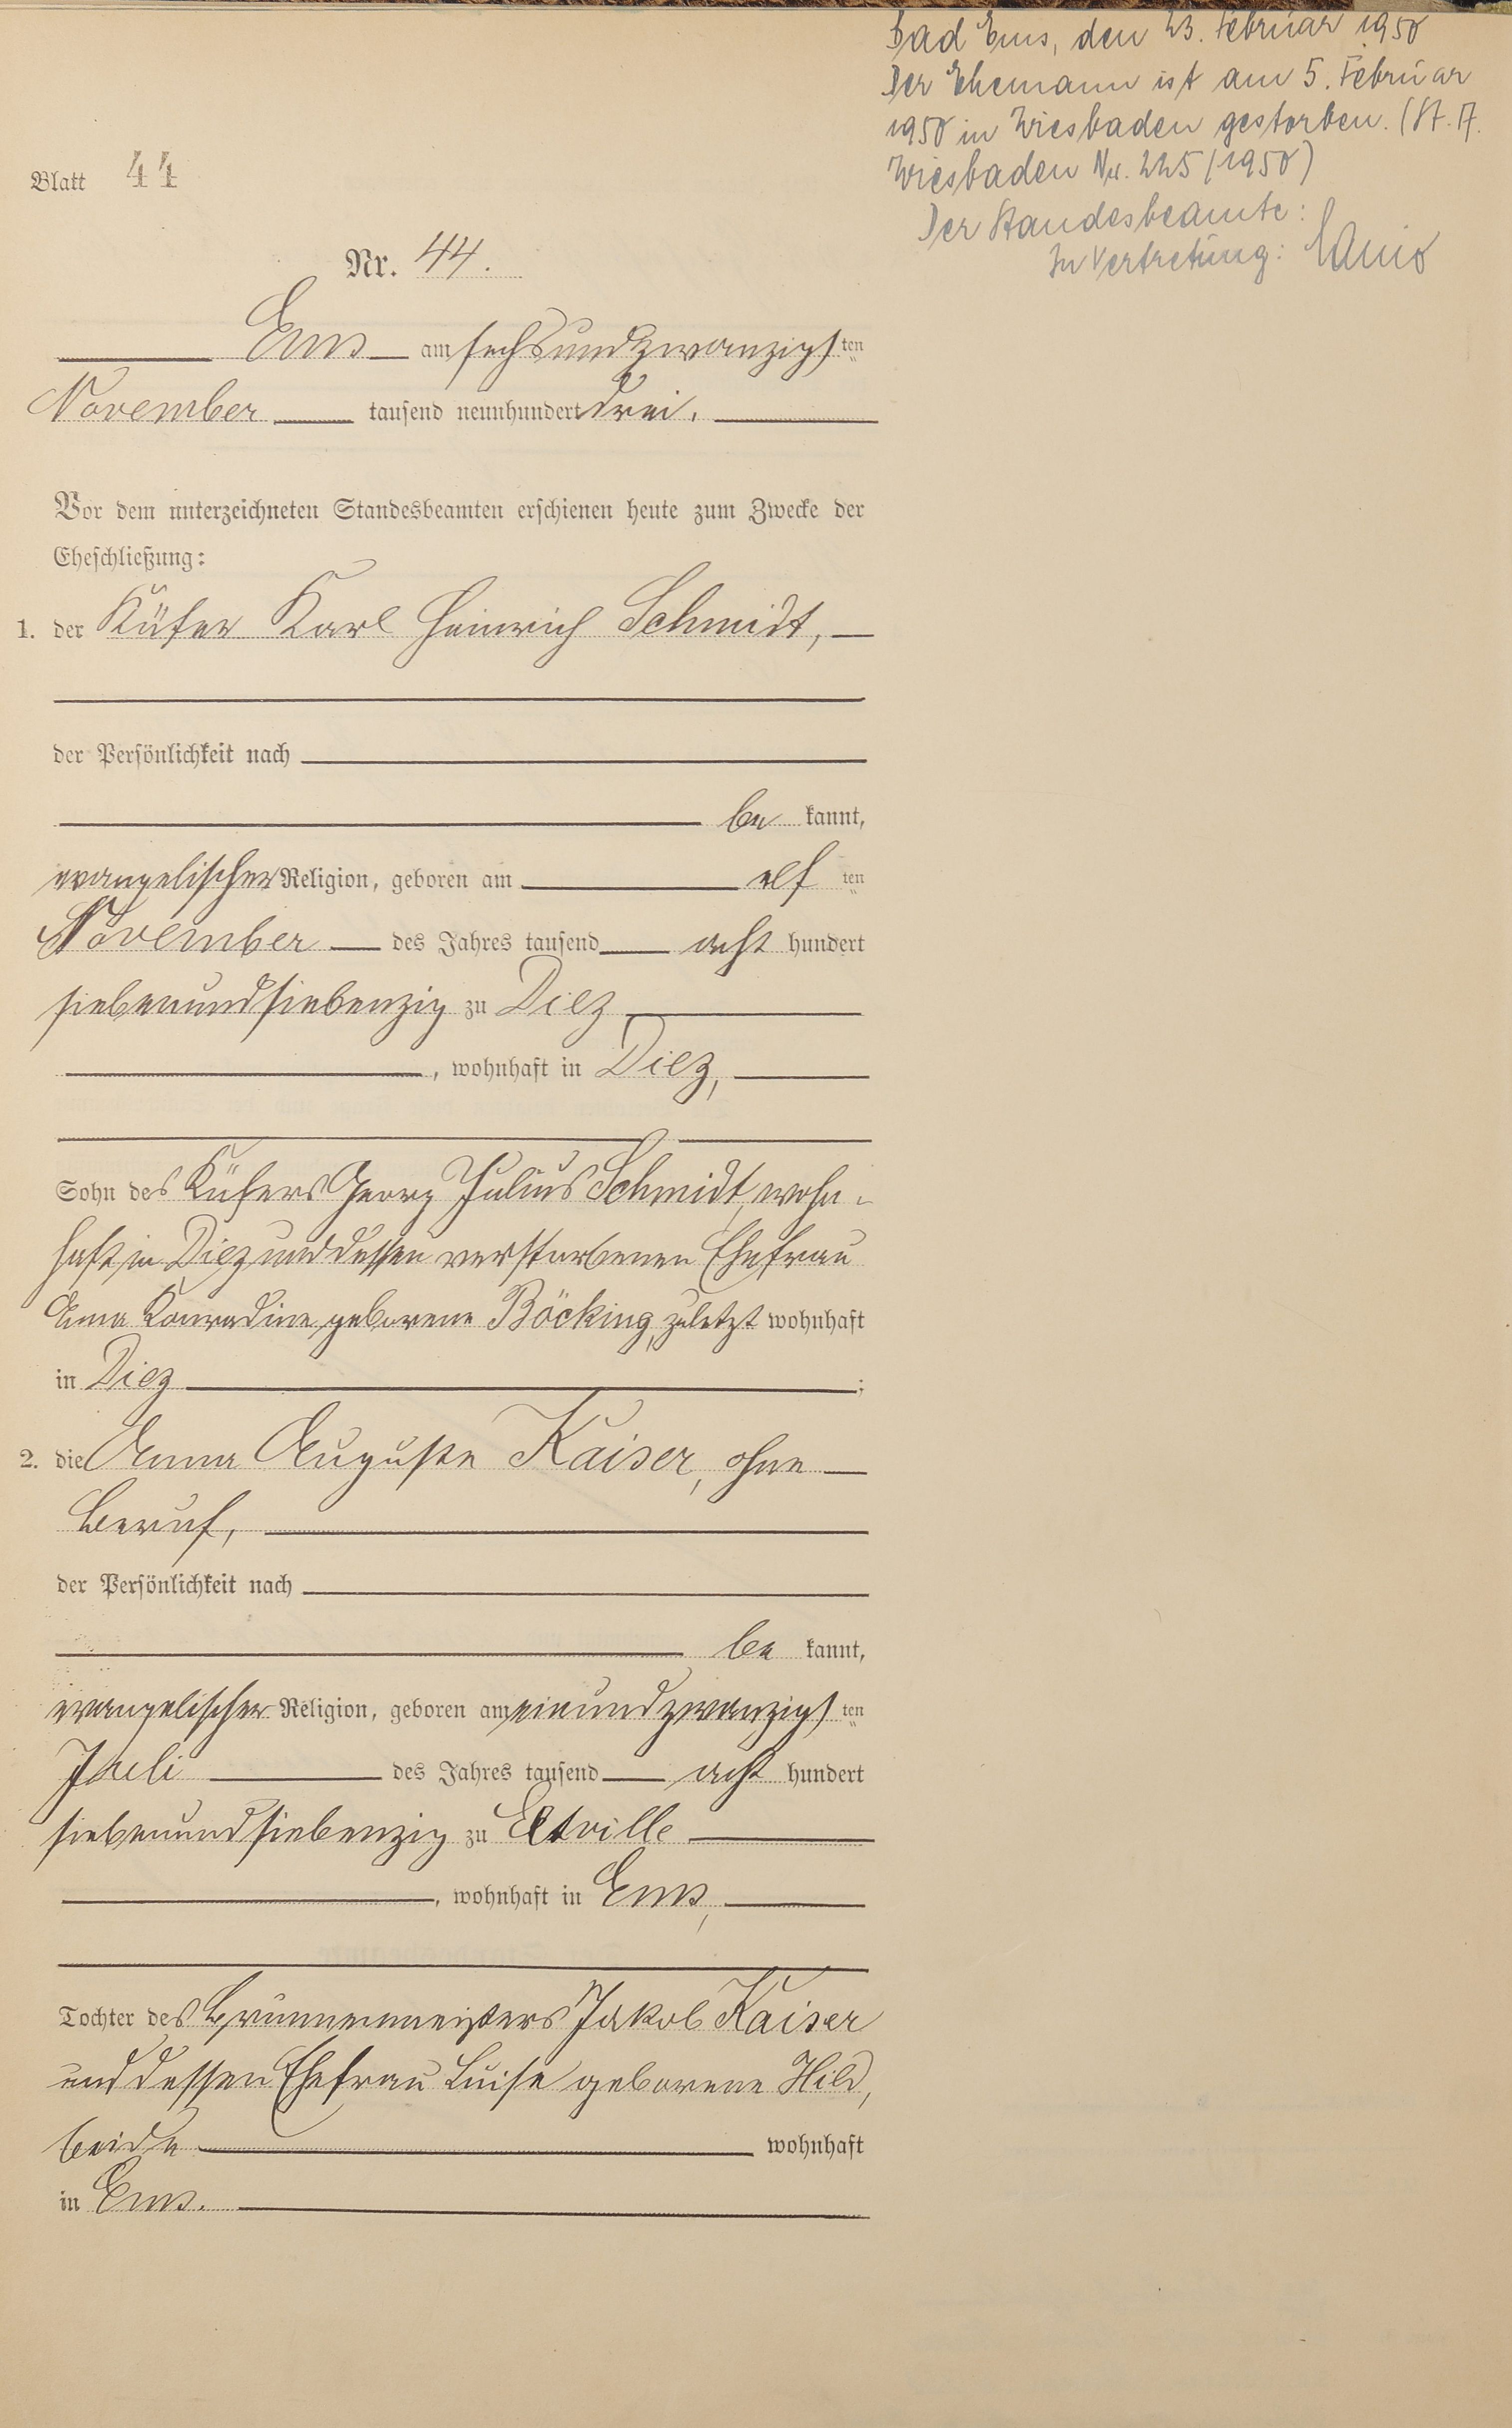 Bad Ems, den 23. Februar 1950
Der Ehemann ist am 5. Februar
1950 in Wiesbaden gestorben. (St. A.
Wiesbaden Nr. 225/1950)
Der Standesbeamte:
In Vertretung:
Blatt 44
Nr. 44.
Ems am sechsundzwanzigsten
November tausend neunhundert drei.
Vor dem unterzeichneten Standesbeamten erschienen heute zum Zwecke der
Eheschließung:
1. der Küfer Karl Heinrich Schmidt,
der Persönlichkeit nach
be kannt,
evangelischer Religion, geboren am elf ten
November des Jahres tausend acht hundert
siebenundsiebenzig zu Diez
, wohnhaft in Diez,
Sohn des Küfers Georg Julius Schmidt, wohn-
haft in Diez und dessen verstorbenen Ehefrau
Anna Konradine geborene Böcking, zuletzt wohnhaft
in Diez ;
2. die Anna Auguste Kaiser, ohne
Beruf,
der Persönlichkeit nach
be kannt,
evangelischer Religion, geboren am einundzwanzigsten
Juli des Jahres tausend acht hundert
siebenundsiebenzig zu Eltville
, wohnhaft in Ems,
Tochter des Brunnenmeisters Jakob Kaiser
und dessen Ehefrau Luise geborene Hild,
beide wohnhaft
in Ems.